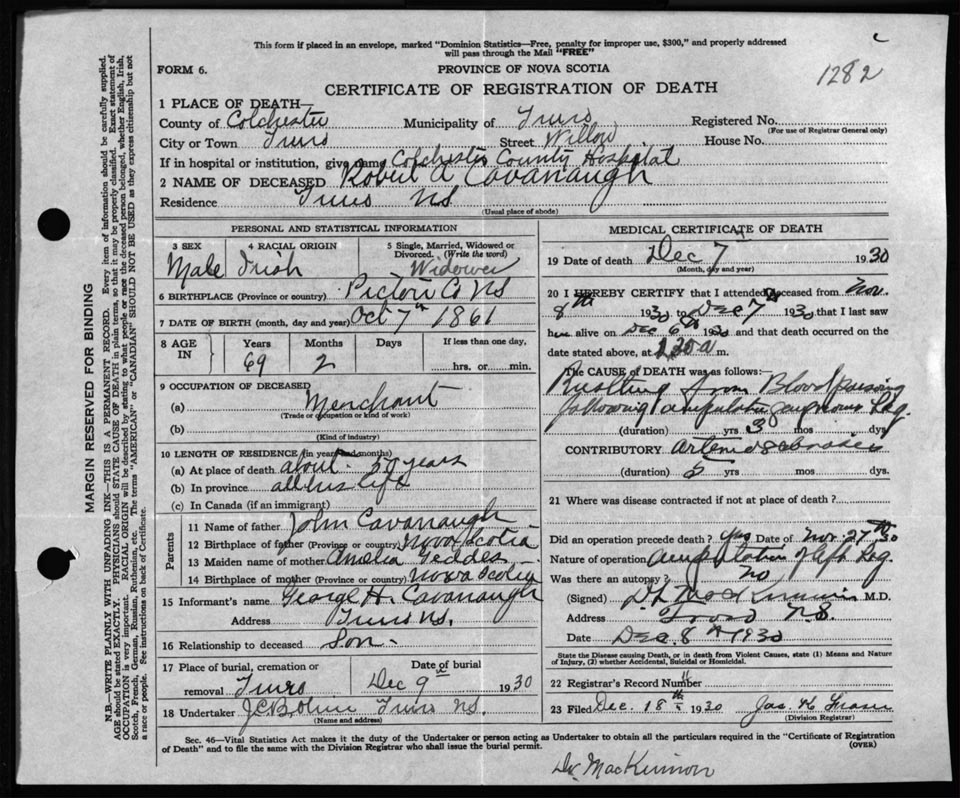 This form if placed in an envelope, marked "Dominion Statistics—Free, penalty for improper use, $300," and properly addressed
will pass through the Mail "FREE"
FORM 6.
PROVINCE OF NOVA SCOTIA
1282
CERTIFICATE OF REGISTRATION OF DEATH
1 PLACE OF DEATH—
County of Colchester Municipality of Truro Registered No.
(For use of Registrar General only)
City or Town Truro Street Willow House No.
If in hospital or institution, give name Colchester County Hospital
2 NAME OF DECEASED Robert A Cavanaugh
Residence Truro NS
(Usual place of abode)
PERSONAL AND STATISTICAL INFORMATION
3 SEX 4 RACIAL ORIGIN 5 Single, Married, Widowed or
Divorced. (Write the word)
Male Irish Widower
6 BIRTHPLACE (Province or country) Pictou Co NS
7 DATE OF BIRTH (month, day and year) Oct 7th 1861
8 AGE IN Years Months Days If less than one day,
69 2 hrs. or min.
9 OCCUPATION OF DECEASED
(a) Merchant
(Trade or occupation or kind of work)
(b)
(Kind of industry)
10 LENGTH OF RESIDENCE (in years and months)
(a) At place of death about 50 years
(b) In province all his life
(c) In Canada (if an immigrant)
Parents
11 Name of father John Cavanaugh
12 Birthplace of father (Province or country) Nova Scotia
13 Maiden name of mother Amelia Geddes
14 Birthplace of mother (Province or country) Nova Scotia
15 Informant's name George H. Cavanaugh
Address Truro NS.
16 Relationship to deceased Son.
17 Place of burial, cremation or Date of burial
removal Truro Dec 9th 1930
18 Undertaker Truro NS.
(Name and address)
MEDICAL CERTIFICATE OF DEATH
19 Date of death Dec 7th 1930
(Month, day and year)
20 I HEREBY CERTIFY that I attended deceased from Nov.
8th 1930 to Dec 7th 1930 that I last saw
him alive on Dec 6th 1930 and that death occurred on the
date stated above, at a m.
The CAUSE OF DEATH was as follows:—
Resulting from Blood poisoning
following amputation gangrenous Leg.
(duration) yrs 3 mos dys
CONTRIBUTORY Arteriosclerosis
(duration) 5 yrs mos. dys.
21 Where was disease contracted if not at place of death?
Did an operation precede death? yes Date of Nov. 27th 30
Nature of operation amputation of left Leg.
Was there an autopsy? no
(Signed) D. L. MacKinnon M.D.
Address Truro N.S.
Date Dec. 8th 1930
State the Disease causing Death, or in death from Violent Causes, state (1) Means and Nature
of Injury, (2) whether Accidental, Suicidal or Homicidal.
22 Registrar's Record Number
23 Filed Dec. 18th 1930 Jas. K Fraser
(Division Registrar)
Sec. 46—Vital Statistics Act makes it the duty of the Undertaker or person acting as Undertaker to obtain all the particulars required in the "Certificate of Registration
of Death" and to file the same with the Division Registrar who shall issue the burial permit.
(OVER)
Dr. MacKinnon
MARGIN RESERVED FOR BINDING
N.B.—WRITE PLAINLY WITH UNFADING INK—THIS IS A PERMANENT RECORD. Every item of information should be carefully supplied.
AGE should be stated EXACTLY. PHYSICIANS should STATE CAUSE OF DEATH in plain terms, so that it may be properly classified. Exact statement of
OCCUPATION is very important. RACIAL ORIGIN will be described by stating to what people or race the deceased person belonged, whether English, Irish,
Scotch, French, German, Russian, Ruthenian, etc. The terms "AMERICAN" or "CANADIAN" SHOULD NOT BE USED as they express citizenship but not
a race or people. See instructions on back of Certificate.